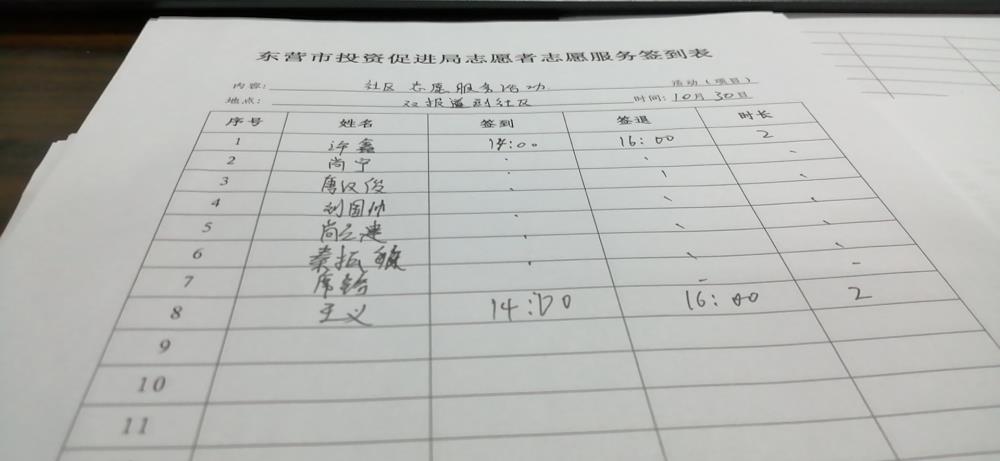 东营市投资促进局志愿者志愿服务签到表
内容: 社区志愿服务活动 活动（项目）
地点: 双报道到社区 时间: 10月30日
序号 姓名 签到 签退 时长
1 许鑫 14:00 16:00 2
2 尚宁
3 唐汉俊
4 刘国帅
5 尚云建
6 秦振
7 席
8 王义 14:00 16:00 2
9
10
11